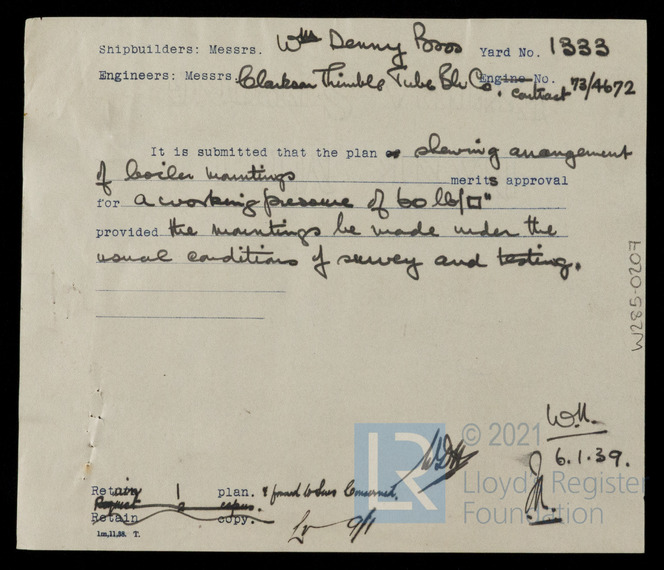 Shipbuilders: Messrs. Wm Denny Bros Yard No. 1333
Engineers: Messrs. Clarkson Thimble Tube Blr Co. Engine No. contract 73/4672
It is submitted that the plan shewing arrangement
of boiler mountings merits approval
for a working pressure of 60 lb/□"
provided the mountings be made under the
usual conditions of survey and testing.
W285-0207
W.N.
6.1.39.
© 2021
LR
Lloyd's Register
Foundation
Retain 1 plan. & forward to Surs Concerned.
Request 2 copies.
Retain copy. 9/1
1m,11,38. T.